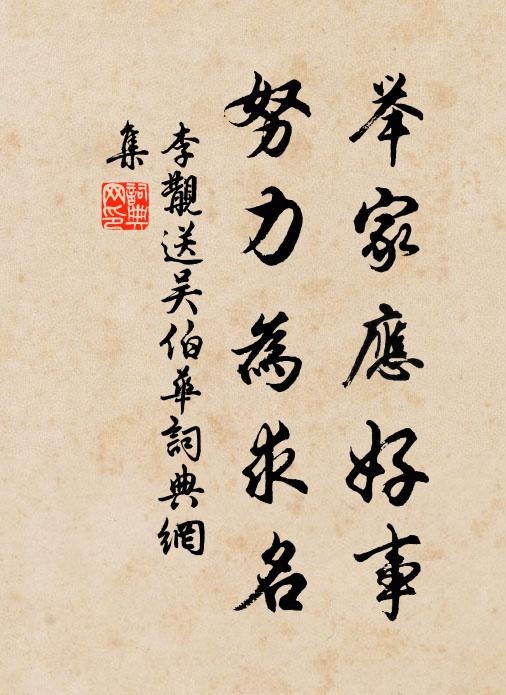 举家應好事
努力為求名
李覯送吴伯華詞典網
集
詞典網印